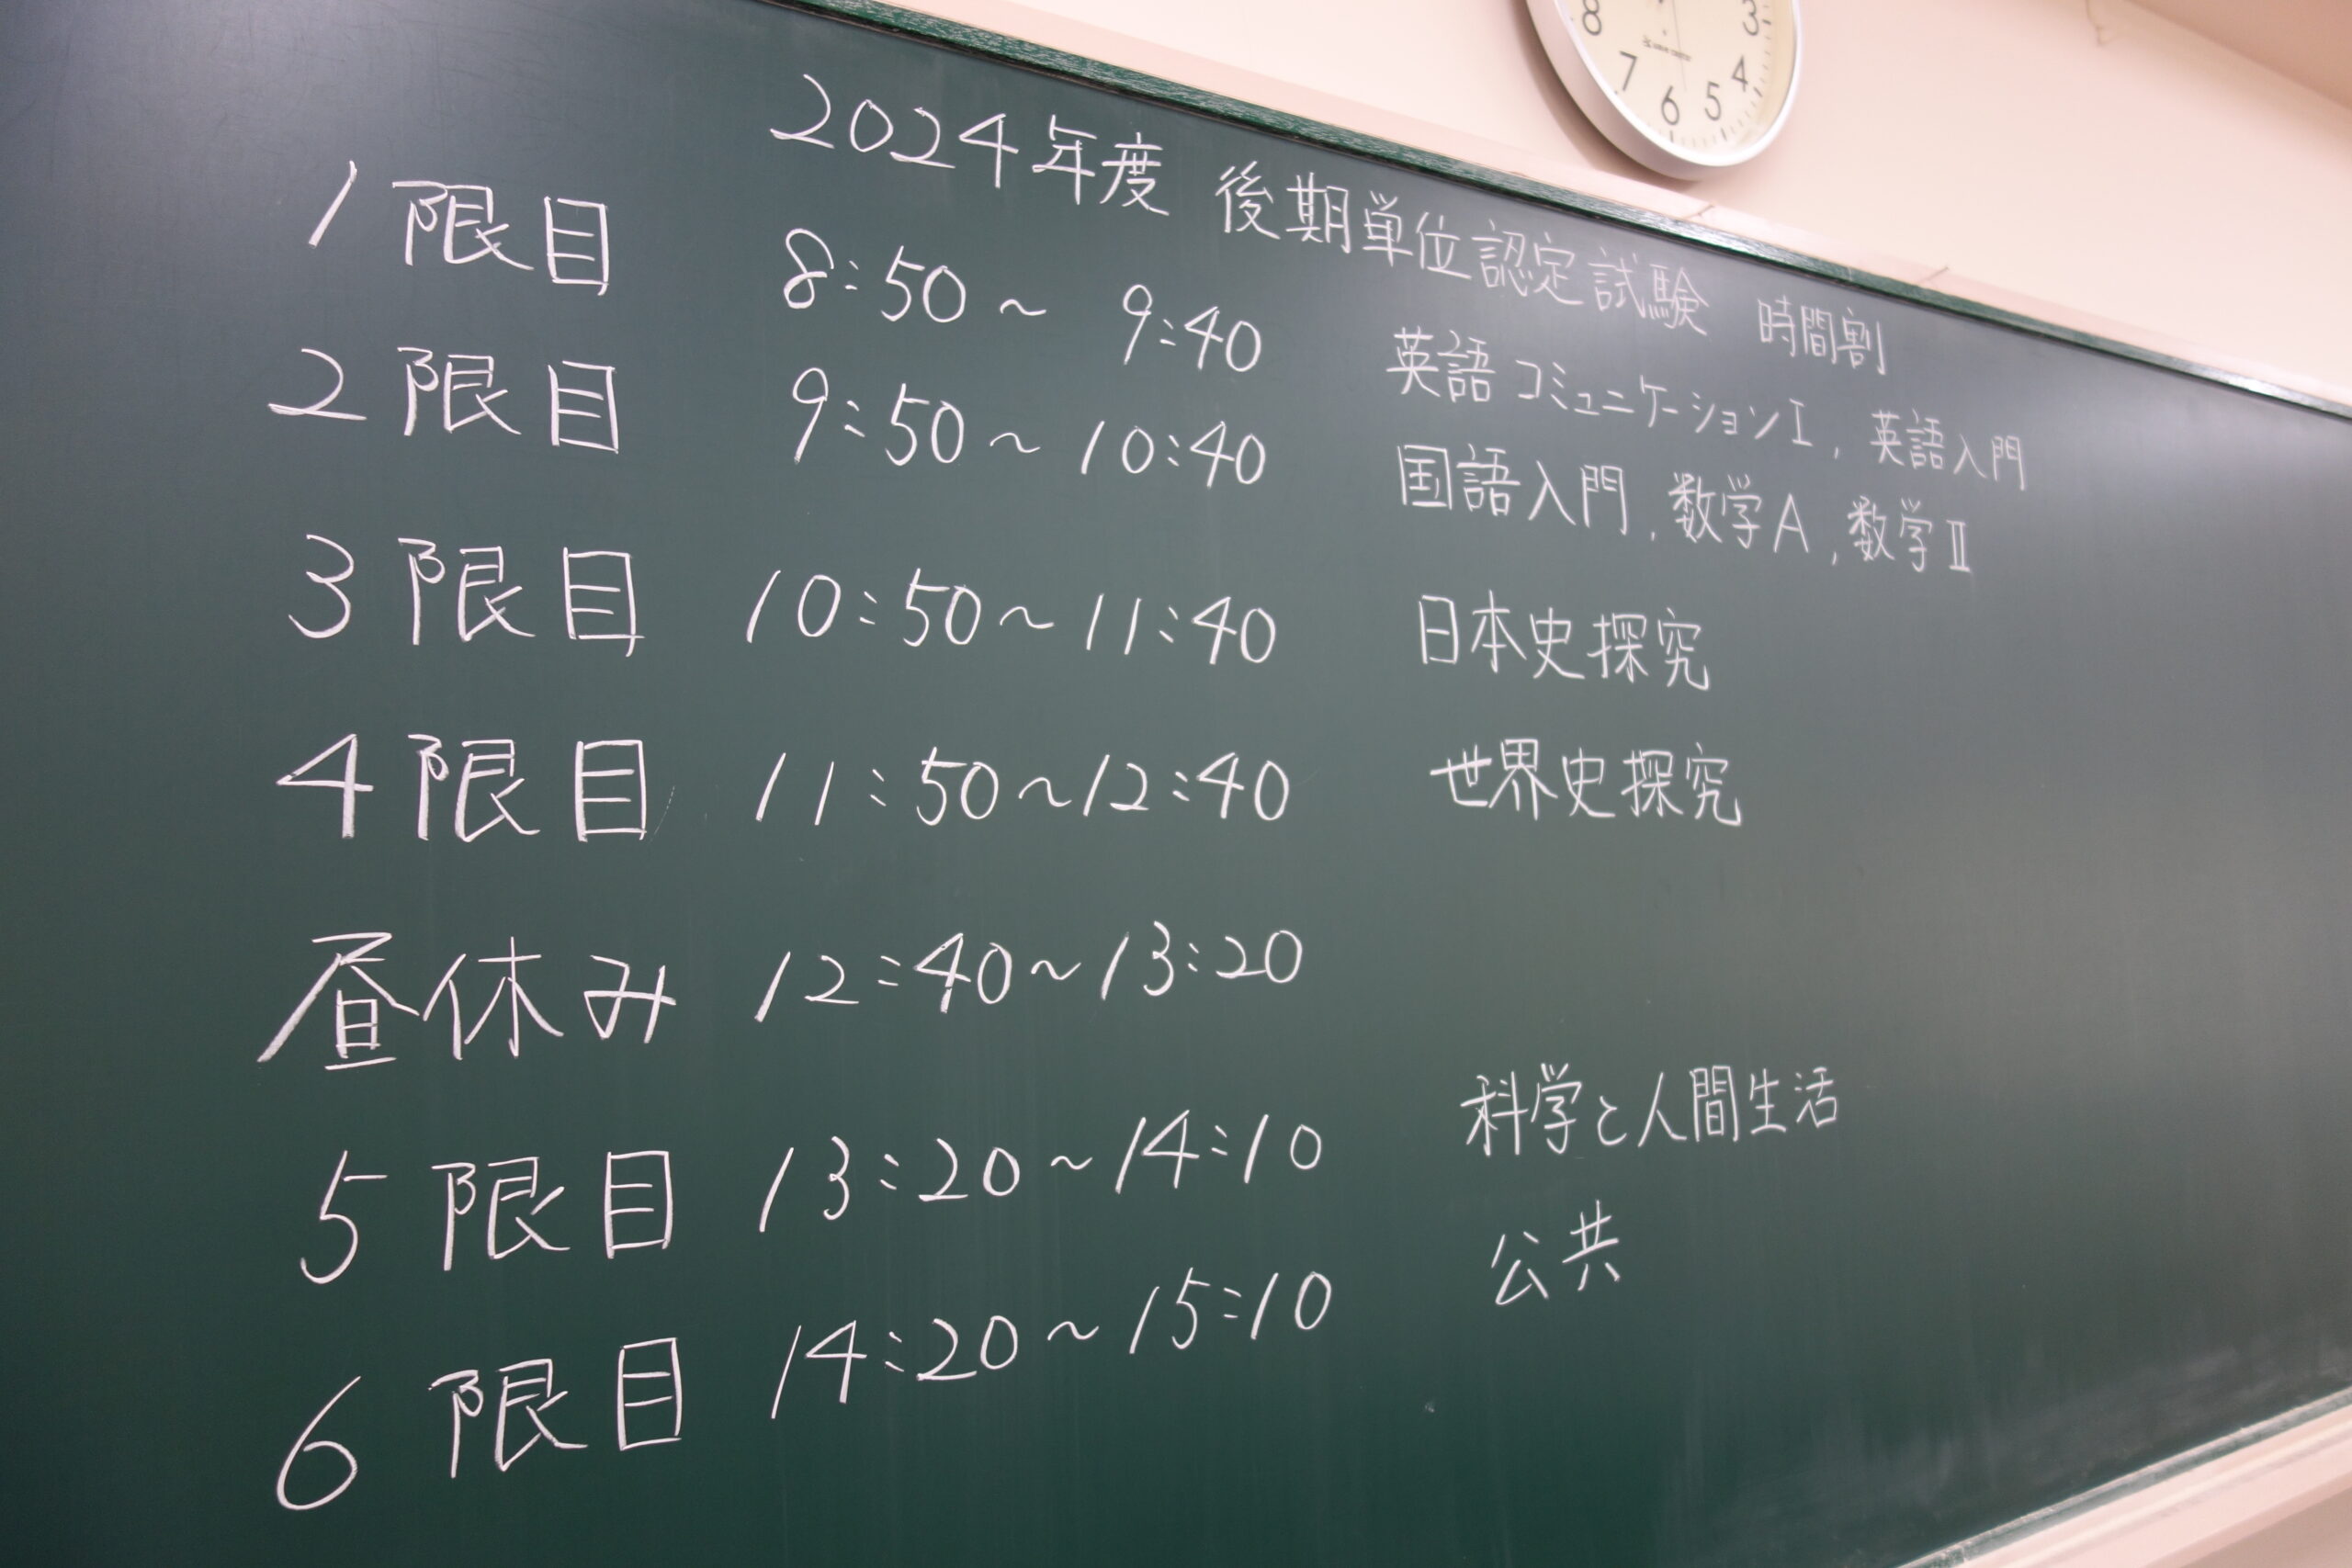 2024年度 後期単位認定試験 時間割
1限目 8:50~ 9:40 英語コミュニケーションⅠ, 英語入門
2限目 9:50~10:40 国語入門, 数学A, 数学Ⅱ
3限目 10:50~11:40 日本史探究
4限目 11:50~12:40 世界史探究
昼休み 12:40~13:20
5限目 13:20~14:10 科学と人間生活
6限目 14:20~15:10 公共
8 7 6 5 4 3